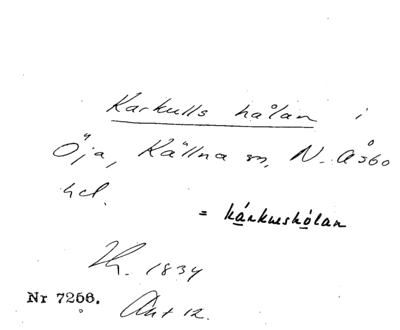 Karkulls hålan i
Öja, Källna sn, N. Åsbo
hd.
= kánkushólan
Kr. 1834
Nr 7256. Akt 12.